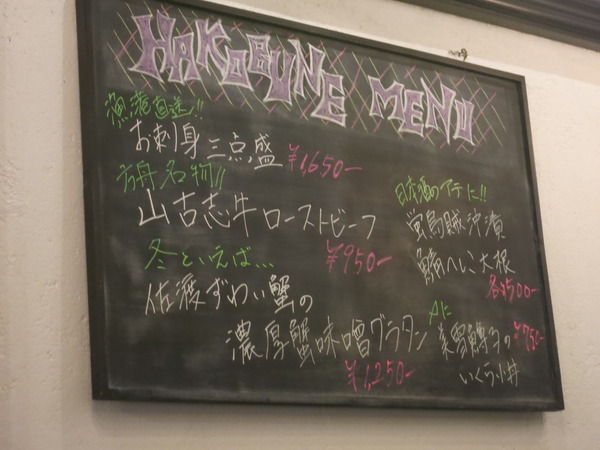 HAKOBUNE MENU
漁港直送!!
お刺身三点盛
¥1,650-
方舟名物!!
山古志牛ローストビーフ
¥950-
冬といえば…
佐渡ずわい蟹の
濃厚蟹味噌グラタン
¥1,250-
日本酒のアテに!!
蛍烏賊沖漬
鰯へしこ大根
各¥500-
〆に
美雪鱒の
¥750-
いくら小丼